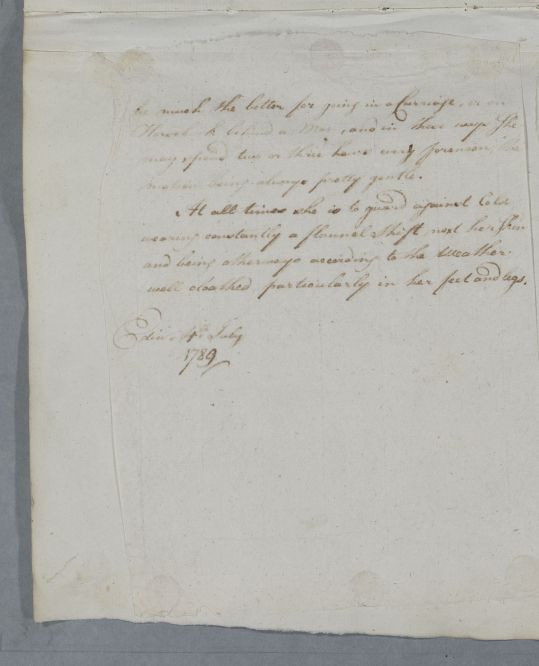 be much the better for going in a Carriage, or on
Horseback behind a Man, and in these ways she
may spend two or three hours every forenoon, the
motion being always pretty gentle.
At all times she is to guard against Cold
wearing constantly a flannel Shift next her Skin
and being otherways according to the Weather
well cloathed particularly in her feet and legs.
Edinr. 4th July
1789